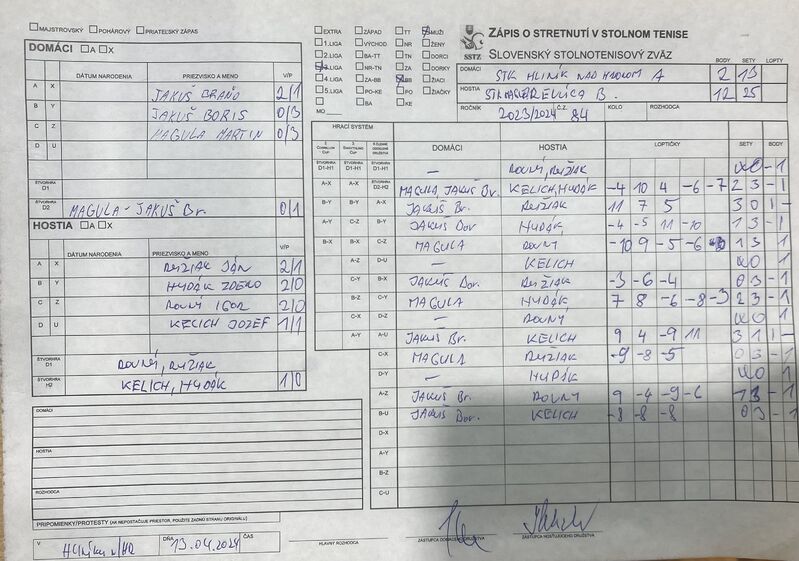 MAJSTROVSKÝ POHÁROVÝ PRIATEĽSKÝ ZÁPAS
DOMÁCI A X
DÁTUM NARODENIA PRIEZVISKO A MENO V/P
A X JAKUŠ BRAŇO 2/1
B Y JAKUŠ BORIS 0/3
C Z MAGULA MARTIN 0/3
D U
ŠTVORHRA D1
ŠTVORHRA D2 MAGULA - JAKUŠ Br. 0/1
HOSTIA A X
DÁTUM NARODENIA PRIEZVISKO A MENO V/P
A X RUŽIAK JÁN 2/1
B Y HUDÁK ZDENO 2/0
C Z ROVNÝ IGOR 2/0
D U KELICH JOZEF 1/1
ŠTVORHRA D1 ROVNÝ, RUŽIAK
ŠTVORHRA H2 KELICH, HUDÁK 1/0
DOMÁCI
HOSTIA
ROZHODCA
PRIPOMIENKY/PROTESTY (AK NEPOSTAČUJE PRIESTOR, POUŽITE ZADNÚ STRANU ORIGINÁLU)
V Hliník n/HR DŇA 13.04.2024 ČAS
EXTRA ZÁPAD TT MUŽI
1.LIGA VÝCHOD NR ŽENY
2.LIGA BA-TT TN DORCI
3.LIGA NR-TN ZA DORKY
4.LIGA ZA-BB BB ŽIACI
5.LIGA PO-KE PO ŽIAČKY
BA KE
MO
SSTZ
ZÁPIS O STRETNUTÍ V STOLNOM TENISE
SLOVENSKÝ STOLNOTENISOVÝ ZVÄZ
BODY SETY LOPTY
DOMÁCI STK HLINÍK NAD HRONOM A 2 13
HOSTIA REVÚCA B. 12 25
ROČNÍK 2023/2024 Č.Z. 84 KOLO ROZHODCA
HRACÍ SYSTÉM
DOMÁCI HOSTIA LOPTIČKY SETY BODY
ŠTVORHRA D1-H1 ŠTVORHRA D1-H1 ŠTVORHRA D1-H1 — ROVNÝ, RUŽIAK WO - 1
A-X A-X ŠTVORHRA D2-H2 MAGULA, JAKUŠ Br. KELICH, HUDÁK -4 10 4 -6 -7 2 3 - 1
B-Y B-Y A-X JAKUŠ Br. RUŽIAK 11 7 5 3 0 1 -
A-Y C-X B-Y JAKUŠ Bor. HUDÁK -4 -5 11 -10 1 3 - 1
B-X B-X C-Z MAGULA ROVNÝ -10 9 -5 -6 1 3 1
A-Z D-U — KELICH WO 1
C-Y B-X JAKUŠ Bor. RUŽIAK -3 -6 -4 0 3 - 1
B-Z C-Y MAGULA HUDÁK 7 8 -6 -8 -3 2 3 - 1
C-X D-Z — ROVNÝ WO 1
A-Y A-U JAKUŠ Br. KELICH 9 4 -9 11 3 1 1 -
C-X MAGULA RUŽIAK -9 -8 -5 0 3 - 1
D-Y — HUDÁK WO 1
A-Z JAKUŠ Br. ROVNÝ 9 -4 -9 -6 1 3 - 1
B-U JAKUŠ Bor. KELICH -8 -8 -8 0 3 - 1
D-X
A-Y
B-Z
C-U
HLAVNÝ ROZHODCA ZÁSTUPCA DOMÁCEHO DRUŽSTVA ZÁSTUPCA HOSŤUJÚCEHO DRUŽSTVA